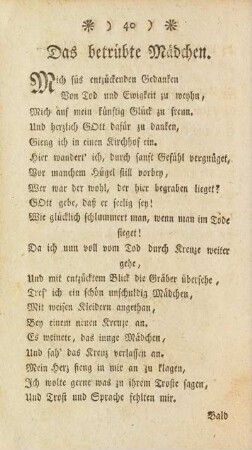 ❋ ) 40 ( ❋
Das betrübte Mädchen.
Mich süs entzückenden Gedanken
Von Tod und Ewigkeit zu weyhn,
Mich auf mein künftig Glück zu freun.
Und herzlich GOtt dafür zu danken,
Gieng ich in einen Kirchhof ein.
Hier wandert' ich, durch sanft Gefühl vergnüget,
Vor manchem Hügel still vorbey,
Wer war der wohl, der hier begraben lieget?
GOtt gebe, daß er seelig sey!
Wie glücklich schlummert man, wenn man im Tode
sieget!
Da ich nun voll vom Tod durch Kreuze weiter
gehe,
Und mit entzücktem Blick die Gräber übersehe,
Tref' ich ein schön unschuldig Mädchen,
Mit weisen Kleidern angethan,
Bey einem neuen Kreuze an.
Es weinete, das iunge Mädchen,
Und sah' das Kreuz verlassen an.
Mein Herz fieng in mir an zu klagen,
Ich wolte gerne was zu ihrem Troste sagen,
Und Trost und Sprache fehlten mir.
Bald